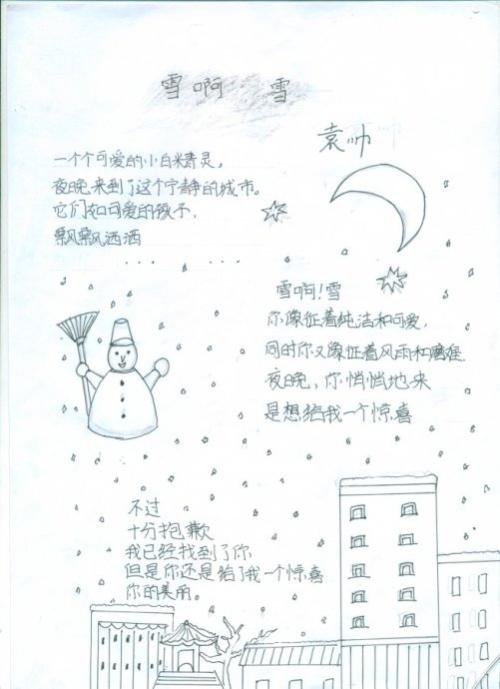 雪啊 雪
袁帅
一个个可爱的小白精灵,
夜晚来到了这个宁静的城市。
它们如可爱的孩子,
飘飘洒洒
...
雪啊!雪
你像征着纯洁和可爱,
同时你又像征着风雨和磨难
夜晚,你悄悄地来
是想给我一个惊喜
不过
十分抱歉
我已经找到了你
但是你还是给了我一个惊喜
你的美丽。